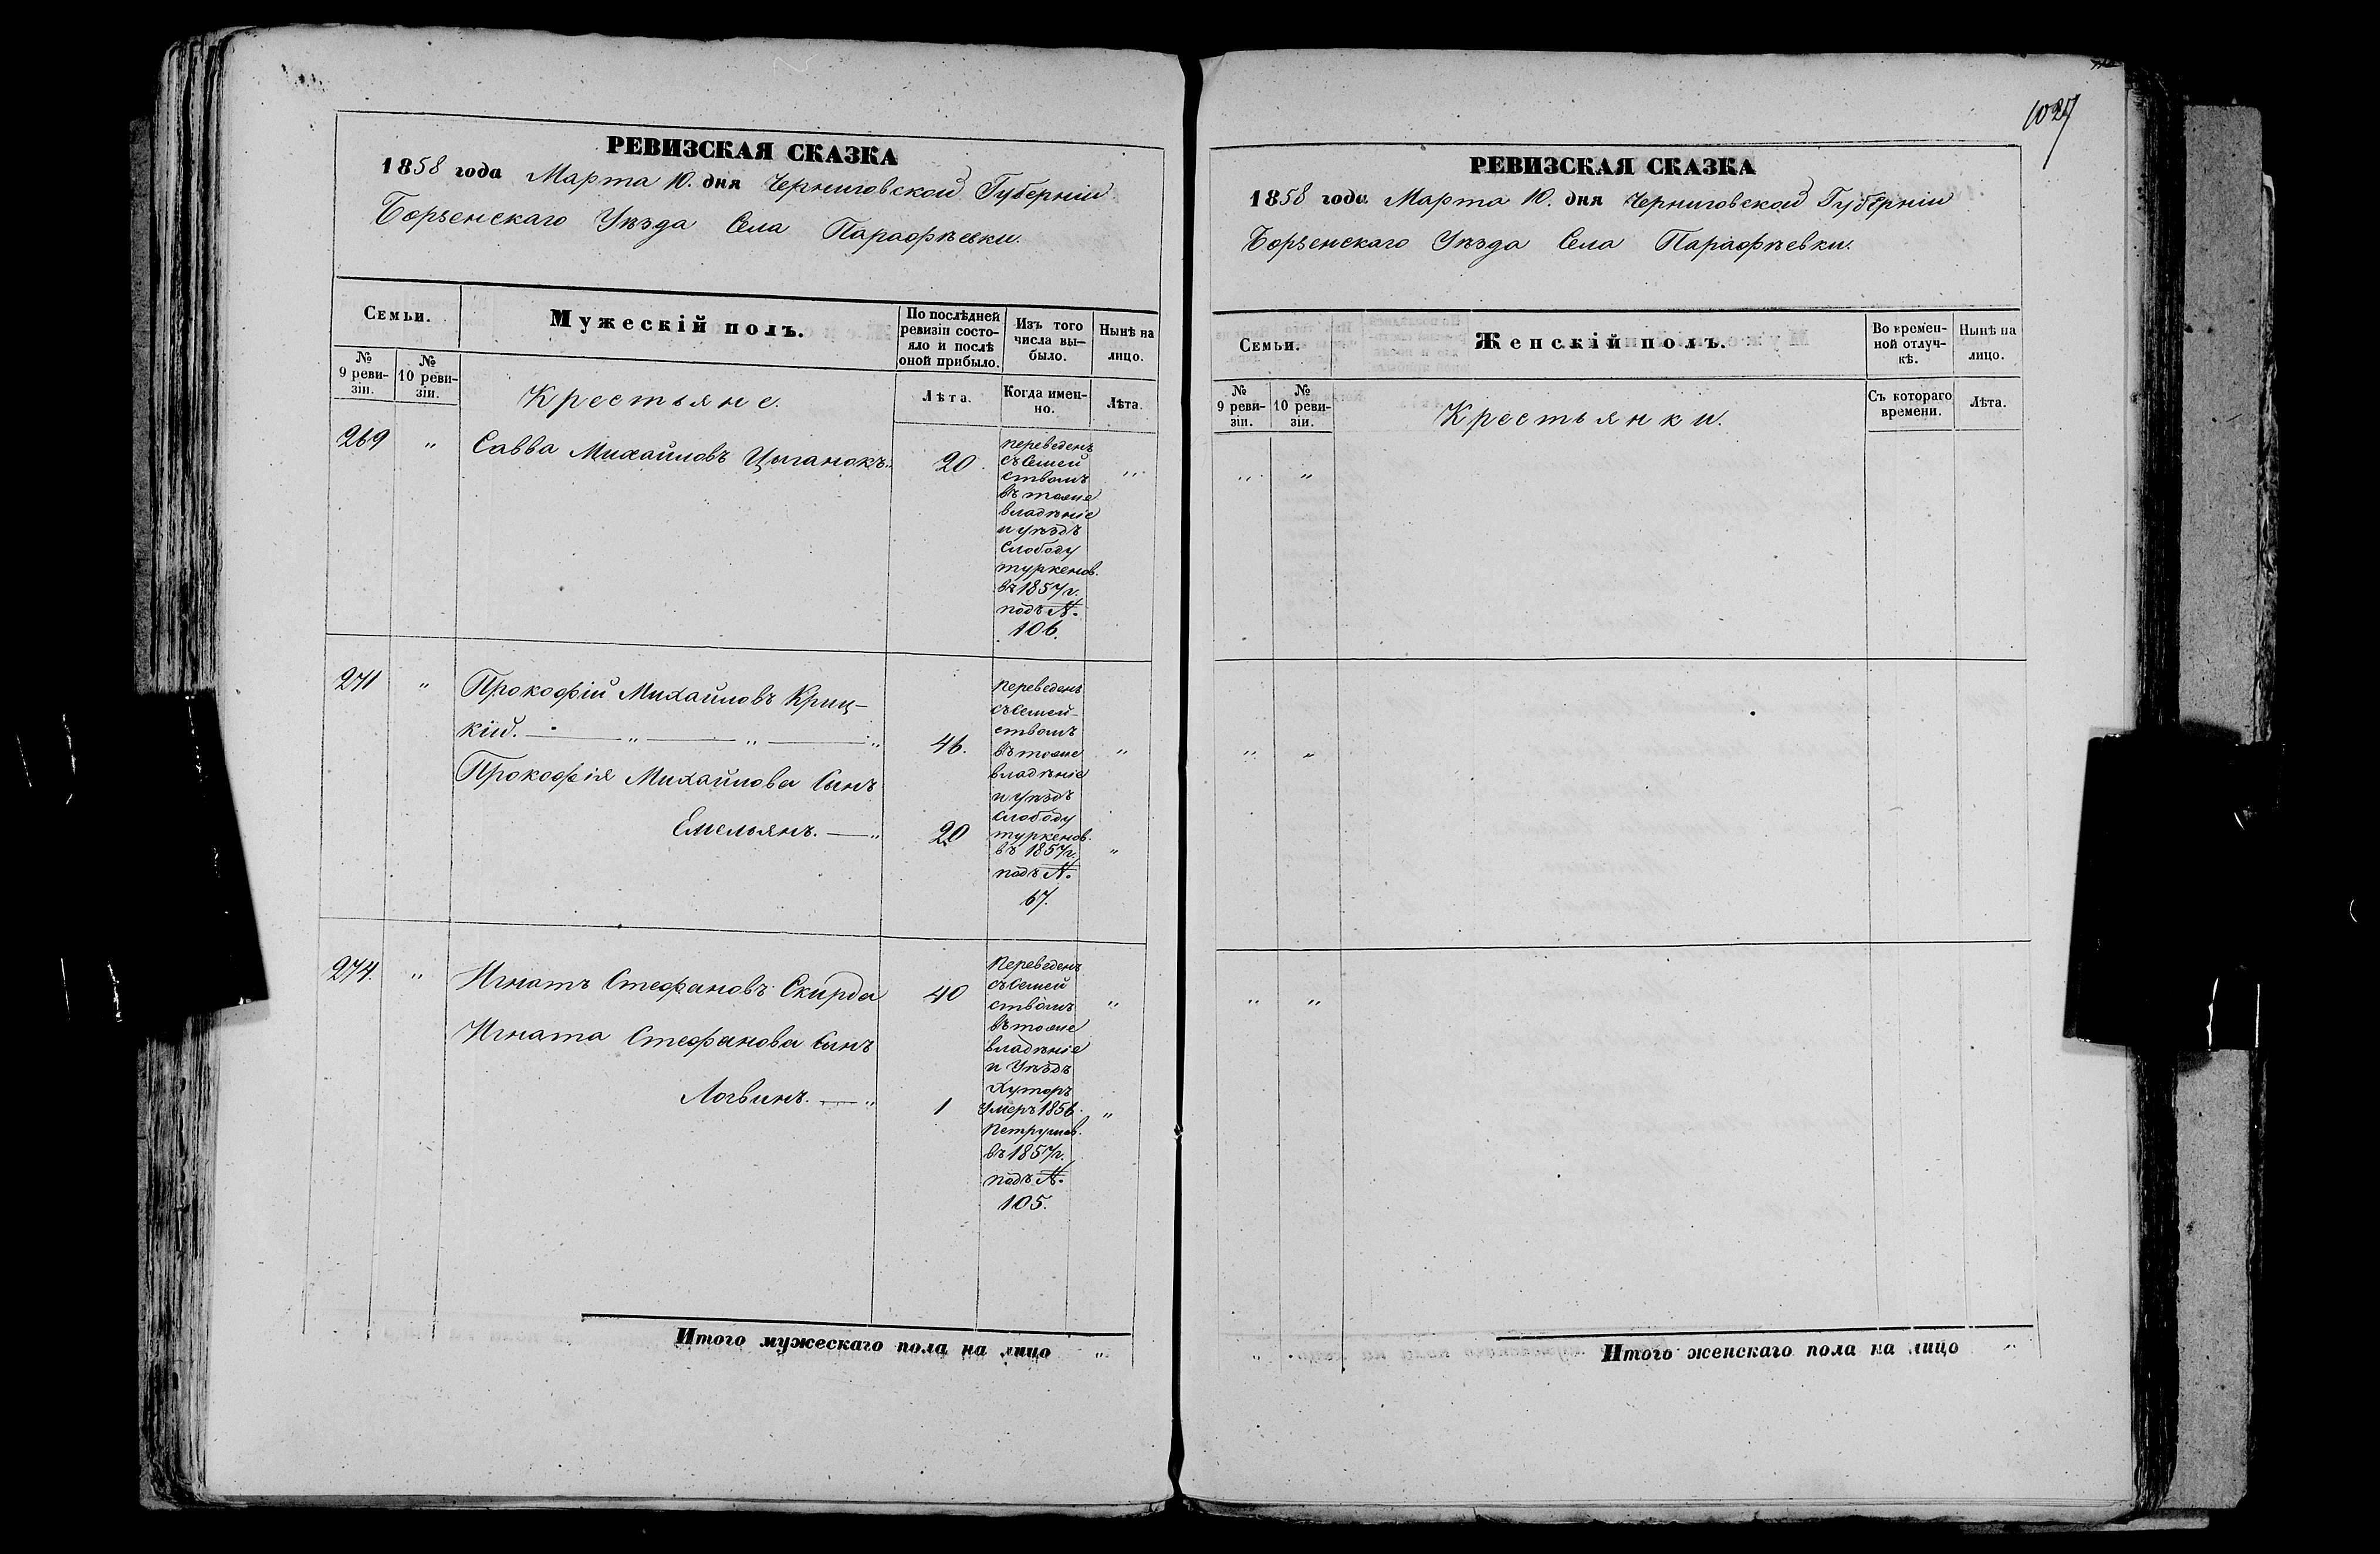 РЕВИЗСКАЯ СКАЗКА
1858 года Марта 10. дня Черниговской Губерніи
Борзенскаго Уѣзда Села Парафѣевки.
Семьи.
Мужескій полъ.
По послѣдней ревизіи состо-
яло и послѣ
оной прибыло.
Изъ того
числа вы-
было.
Нынѣ на
лицо.
№
9 реви-
зіи.
№
10 реви-
зіи.
Крестьяне.
Лѣта.
Когда имен-
но.
Лѣта.
269 " Савва Михайловъ Цыганокъ. 20.
переведенъ
съ семей
ствомъ
въ тоже
владѣніе
и уѣздъ
слободу
туркенов.
въ 1857 г.
подъ №.
106.
271 " Прокофій Михайловъ Криц-
кій. " " " 46. "
Прокофія Михайлова Сынъ
Емельянъ. — " 20 "
переведенъ
съ семей-
ствомъ
въ тоже
владѣніе
и уѣздъ
слободу
туркенов.
въ 1857 г.
подъ №.
67.
274. " Игнатъ Стефановъ Скирда 40 "
Игната Стефанова Сынъ
Логвинъ. — " 1 "
переведенъ
съ семей
ствомъ
въ тоже
владѣніе
и Уѣздъ
Хуторъ
умеръ 1856.
Петрушев.
въ 1857 г.
подъ №.
105.
Итого мужескаго пола на лицо "
1027
РЕВИЗСКАЯ СКАЗКА
1858 года Марта 10. дня Черниговской Губерніи
Борзенскаго Уѣзда Села Парафѣевки.
Семьи.
Женскій полъ.
Во времен-
ной отлуч-
кѣ.
Нынѣ на
лицо.
№
9 реви-
зіи.
№
10 реви-
зіи.
Крестьянки.
Съ котораго
времени.
Лѣта.
" "
" "
" "
Итого женскаго пола на лицо "